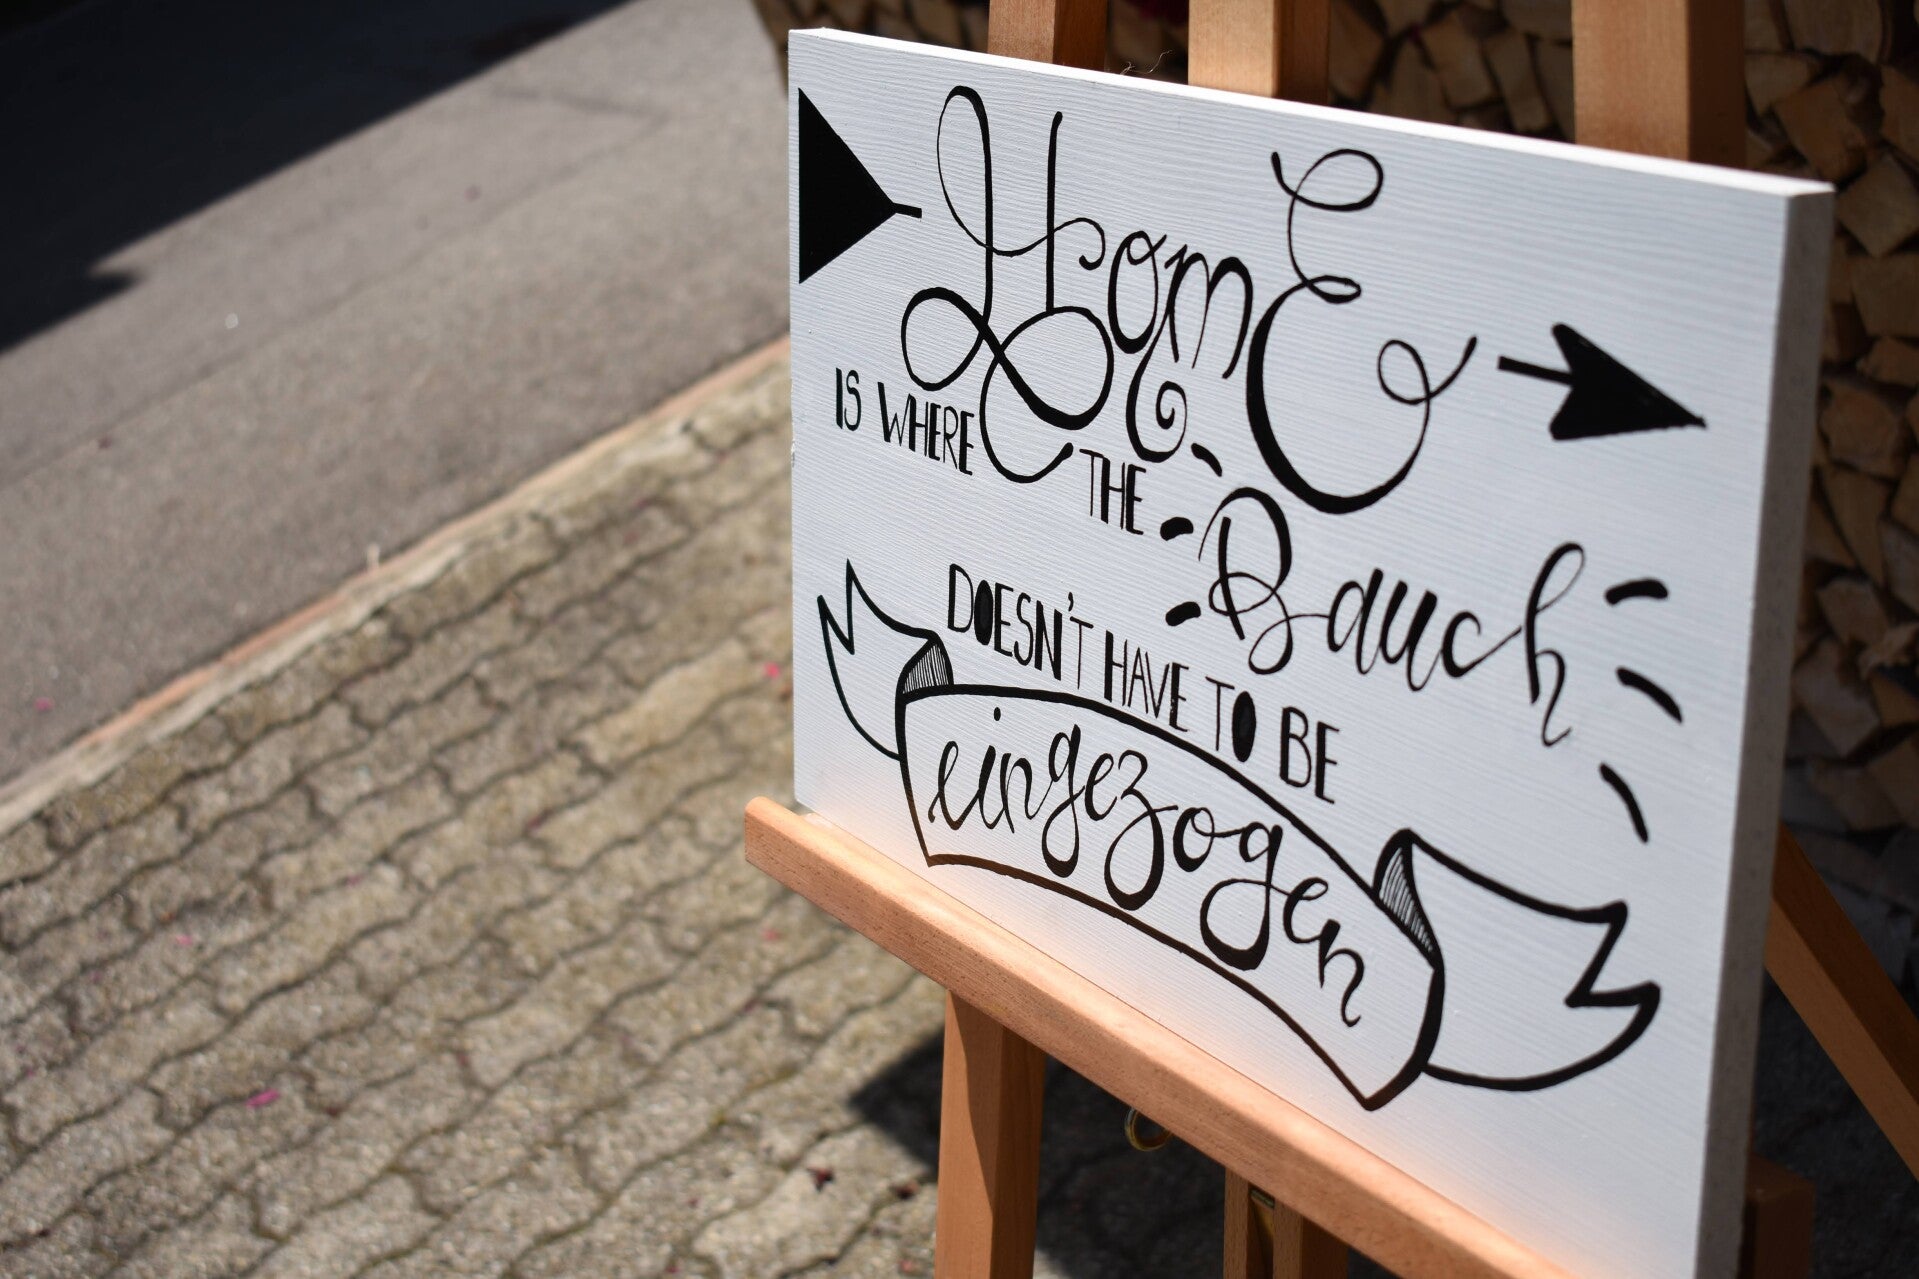 HomE
IS WHERE THE Bauch
DOESN'T HAVE TO BE
eingezogen